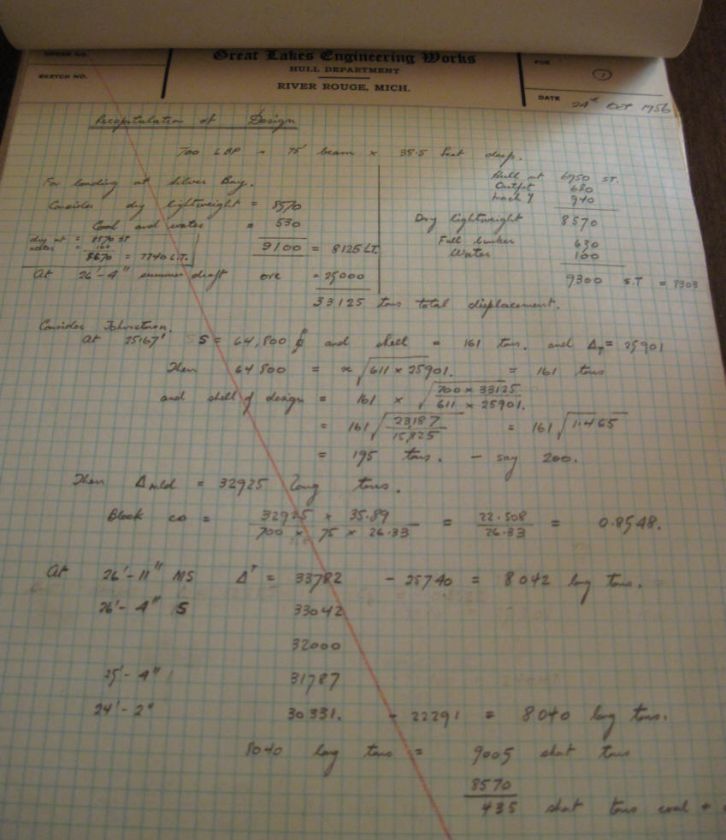 ORDER NO.
SKETCH NO.
Great Lakes Engineering Works
HULL DEPARTMENT
RIVER ROUGE, MICH.
FOR
1
DATE 24th Oct 1956
Recapitulation of Design
700 LBP × 75' beam × 38.5 feet deep.
For loading at Silver Bay.
Consider dry lightweight = 8570
Coal and water = 530
9100 = 8125 LT.
dry wt = 8570 ST
water = 100
8670 = 7740 L.T.
At 26'-4" summer draft ore = 25000
33125 tons total displacement.
Hull wt 6950 ST.
Outfit 680
Mach'y 940
Dry lightweight 8570
Full bunker 630
Water 100
9300 S.T = 8303
Consider Johnstown.
At 25.67' S = 64,800 and shell = 161 tons. and Δ = 25901
Then 64800 = x √611 × 25901. = 161 tons
and shell of design = 161 × √700 × 33125 / 611 × 25901.
= 161 √23187 / 15825 = 161 √1.465
= 195 tons. - say 200.
Then Δ mld = 32925 long tons.
Block co = 32925 × 35.89 / 700 × 75 × 26.33 = 22.508 / 26.33 = 0.8548.
At 26'-11" MS Δ = 33782 - 25740 = 8042 long tons.
26'-4" S 33042
32000
25'-4" 31787
24'-2" 30331. - 22291 = 8040 long tons.
8040 long tons = 9005 short tons
8570
435 short tons coal +